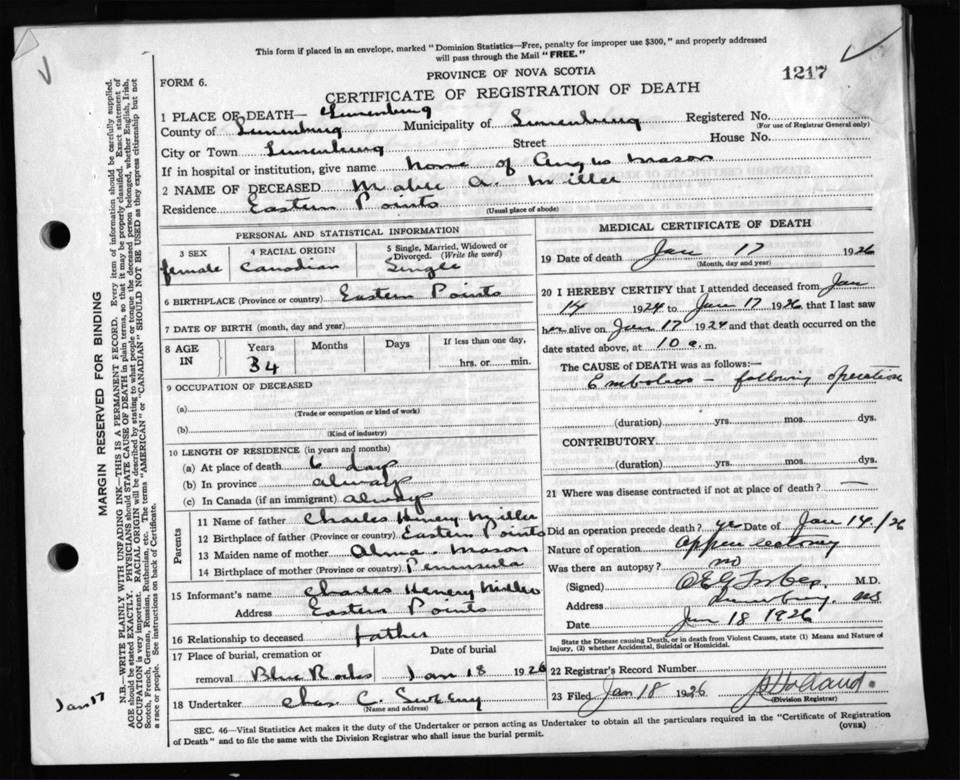 This form if placed in an envelope, marked "Dominion Statistics—Free, penalty for improper use $300," and properly addressed
will pass through the Mail "FREE."
PROVINCE OF NOVA SCOTIA
1217
FORM 6.
CERTIFICATE OF REGISTRATION OF DEATH
1 PLACE OF DEATH— Lunenburg
County of Lunenburg Municipality of Lunenburg Registered No.
(For use of Registrar General only)
City or Town Lunenburg Street House No.
If in hospital or institution, give name home of Angus Mason
2 NAME OF DECEASED Mabel A. Miller
Residence Eastern Points
(Usual place of abode)
PERSONAL AND STATISTICAL INFORMATION
3 SEX 4 RACIAL ORIGIN 5 Single, Married, Widowed or
Divorced. (Write the word)
female Canadian Single
6 BIRTHPLACE (Province or country) Eastern Points
7 DATE OF BIRTH (month, day and year)
8 AGE IN Years Months Days If less than one day,
34 hrs. or min.
9 OCCUPATION OF DECEASED
(a)
(Trade or occupation or kind of work)
(b)
(Kind of industry)
10 LENGTH OF RESIDENCE (in years and months)
(a) At place of death 6 days
(b) In province always
(c) In Canada (if an immigrant) always
Parents
11 Name of father Charles Henery Miller
12 Birthplace of father (Province or country) Eastern Points
13 Maiden name of mother Alma. Mason
14 Birthplace of mother (Province or country) Penninsula
15 Informant's name Charles Henery Miller
Address Eastern Points
16 Relationship to deceased father
17 Place of burial, cremation or Date of burial
removal Blue Rocks Jan 18 1926
18 Undertaker Chas. C. Sweeny
(Name and address)
MEDICAL CERTIFICATE OF DEATH
19 Date of death Jan 17 1926
(Month, day and year)
20 I HEREBY CERTIFY that I attended deceased from Jan
14 1924 to Jan 17 1926 that I last saw
her alive on Jan 17 1924 and that death occurred on the
date stated above, at 10 a.m.
The CAUSE of DEATH was as follows:—
Embolus — following operation
(duration) yrs. mos. dys.
CONTRIBUTORY
(duration) yrs. mos. dys.
21 Where was disease contracted if not at place of death? —
Did an operation precede death? yes Date of Jan 14/26
Nature of operation Appendectomy
Was there an autopsy? no
(Signed) Forbes M.D.
Address Lunenburg. NS
Date Jan 18 1926
State the Disease causing Death, or in death from Violent Causes, state (1) Means and Nature of
Injury, (2) whether Accidental, Suicidal or Homicidal.
22 Registrar's Record Number
23 Filed Jan 18 1926
(Division Registrar)
SEC. 46—Vital Statistics Act makes it the duty of the Undertaker or person acting as Undertaker to obtain all the particulars required in the "Certificate of Registration
of Death" and to file the same with the Division Registrar who shall issue the burial permit.
(OVER)
MARGIN RESERVED FOR BINDING
N.B.—WRITE PLAINLY WITH UNFADING INK—THIS IS A PERMANENT RECORD. Every item of information should be carefully supplied.
AGE should be stated EXACTLY. PHYSICIANS should STATE CAUSE OF DEATH in plain terms, so that it may be properly classified. Exact statement of
OCCUPATION is very important. RACIAL ORIGIN will be described by stating to what people or tongue the deceased person belonged, whether English, Irish,
Scotch, French, German, Russian, Ruthenian, etc. The terms "AMERICAN" or "CANADIAN" SHOULD NOT BE USED as they express citizenship but not
a race or people. See instructions on back of Certificate.
Jan 17